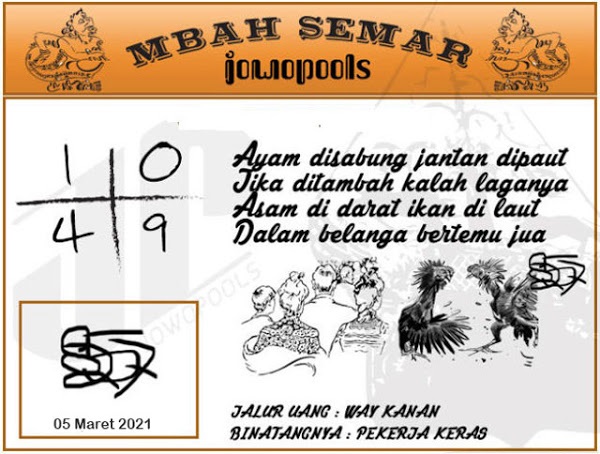 MBAH SEMAR
jowopools
1 0
4 9
Ayam disabung jantan dipaut
Jika ditambah kalah laganya
Asam di darat ikan di laut
Dalam belanga bertemu jua
JOWOPOOLS
05 Maret 2021
JALUR UANG : WAY KANAN
BINATANGNYA : PEKERJA KERAS